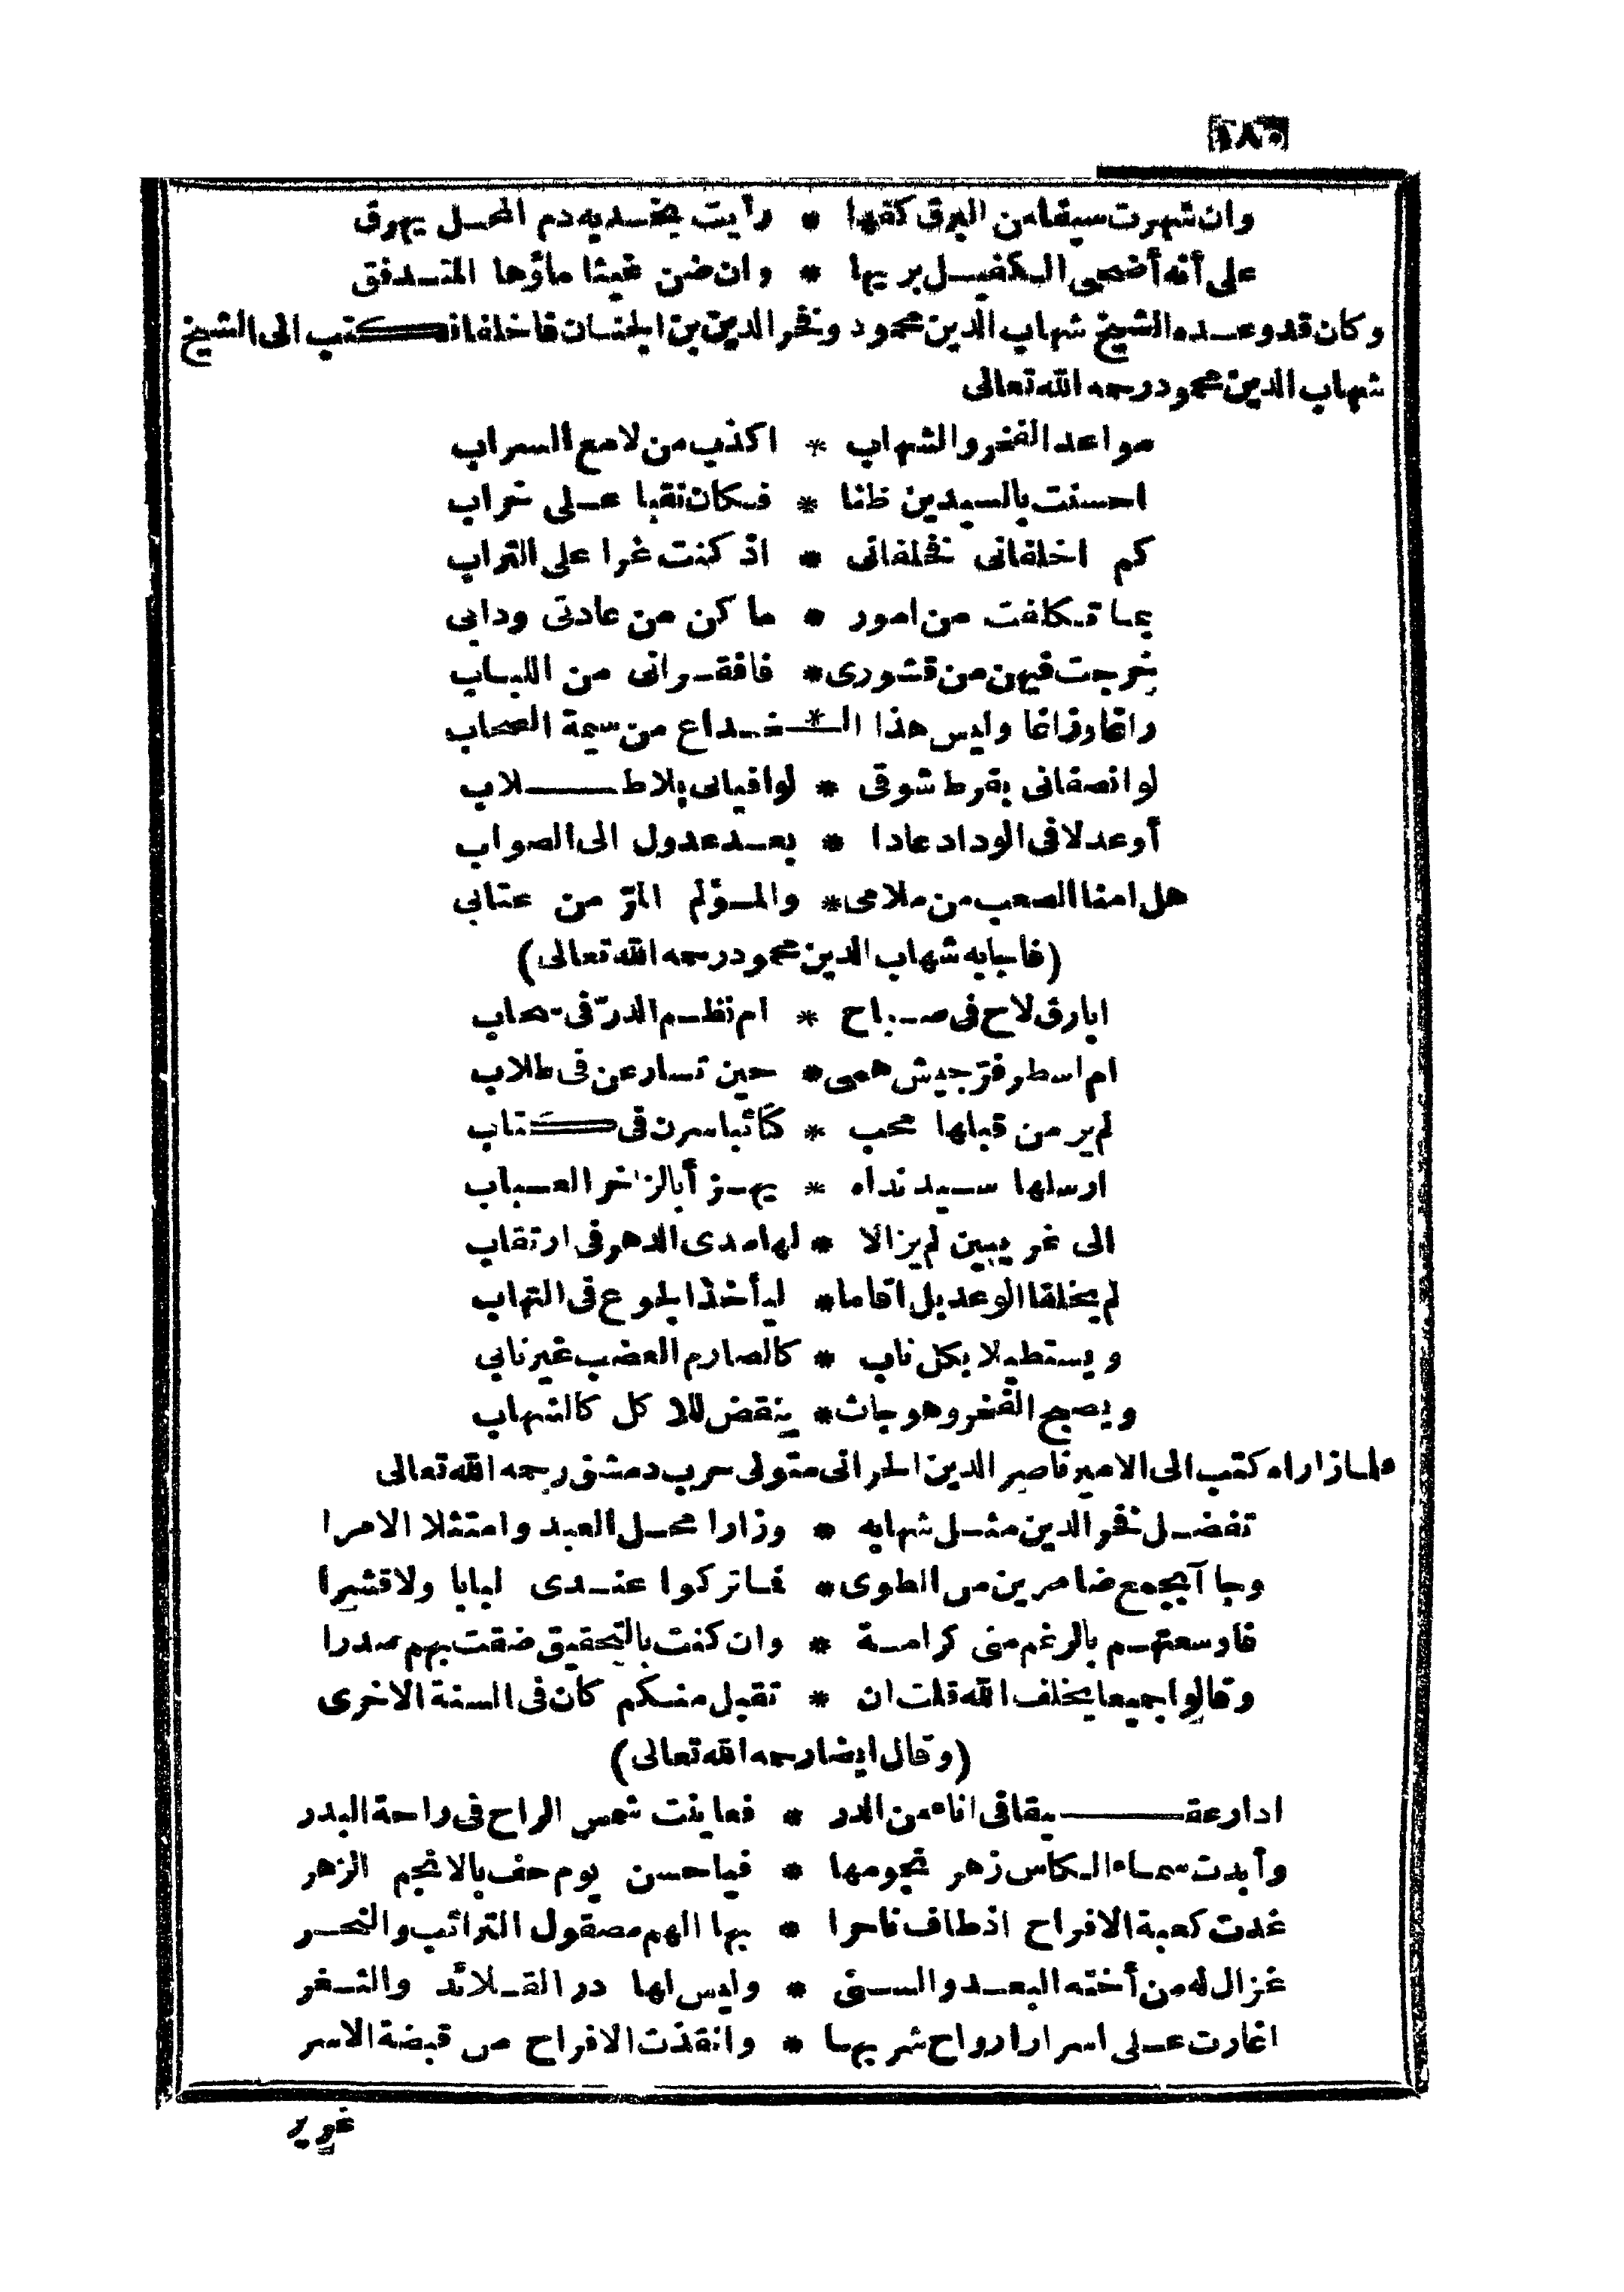 ١٨٠
وان شهرت سيفا من البرق كفها * رأيت بخديه دم المحل يهرق
على أنه أضحى الكفيل بريها * وان ضن غيثا ماؤها المتدفق
وكان قد وعده الشيخ شهاب الدين محمود وفخر الدين بن الجنان فاخلفاه فكتب الى الشيخ
شهاب الدين محمود رحمه الله تعالى
مواعد الفخر والشهاب * اكذب من لامع السراب
احسنت بالسيدين ظنا * فكان نقبا على خراب
كم اخلفانى فخلفانى * اذ كنت غرا على التراب
بما تكلفت من امور * ما كن من عادتى ودابى
خرجت فيهن من قشورى * فافقرانى من اللباب
راغا وزاغا وليس هذا الـ * خداع من سيمة الصحاب
لو انصفانى بفرط شوقى * لوافيانى بلا طلاب
أو عدلا فى الوداد عادا * بعد عدول الى الصواب
هل امنا الصعب من ملامى * والمؤلم المرّ من عتابى
(فاجابه شهاب الدين محمود رحمه الله تعالى)
ابارق لاح فى صباح * ام نظم الدرّ فى سحاب
ام اسطر فرّ جيش همى * حين تسارعن فى طلاب
لم ير من قبلها محب * كتائبا سرن فى كتاب
ارسلها سيد نداه * يهزأ بالزاخر العباب
الى غريبين لم يزالا * لها مدى الدهر فى ارتقاب
لم يخلفا الوعد بل اقاما * ليأخذ الجوع فى التهاب
ويستطيلا بكل ناب * كالصارم العضب غير نابى
ويصبح الفخر وهو جاث * ينقض للاكل كالشهاب
فلما زاراه كتب الى الامير ناصر الدين الحرانى متولى حرب دمشق رحمه الله تعالى
تفضل فخر الدين مثل شهابه * وزارا محل العبد وامتثلا الامرا
وجا آ بجمع ضامرين من الطوى * فما تركوا عندى لبابا ولا قشرا
فاوسعتهم بالرغم منى كرامة * وان كنت بالتحقيق ضقت بهم صدرا
وقالوا جميعا يخلف الله قلت ان * تقبل منكم كان فى السنة الاخرى
(وقال ايضا رحمه الله تعالى)
ادار عقيقا فى اناء من الدر * فعاينت شمس الراح فى راحة البدر
وأبدت سماء الكاس زهر نجومها * فيا حسن يوم حف بالانجم الزهر
غدت كعبة الافراح اذ طاف ناحرا * بها الهم مصقول الترائب والنحر
غزال له من أخته البعد والسنى * وليس لها در القلائد والثغر
اغارت على اسرار ارواح شربها * وانقذت الافراح من قبضة الاسر
غرير